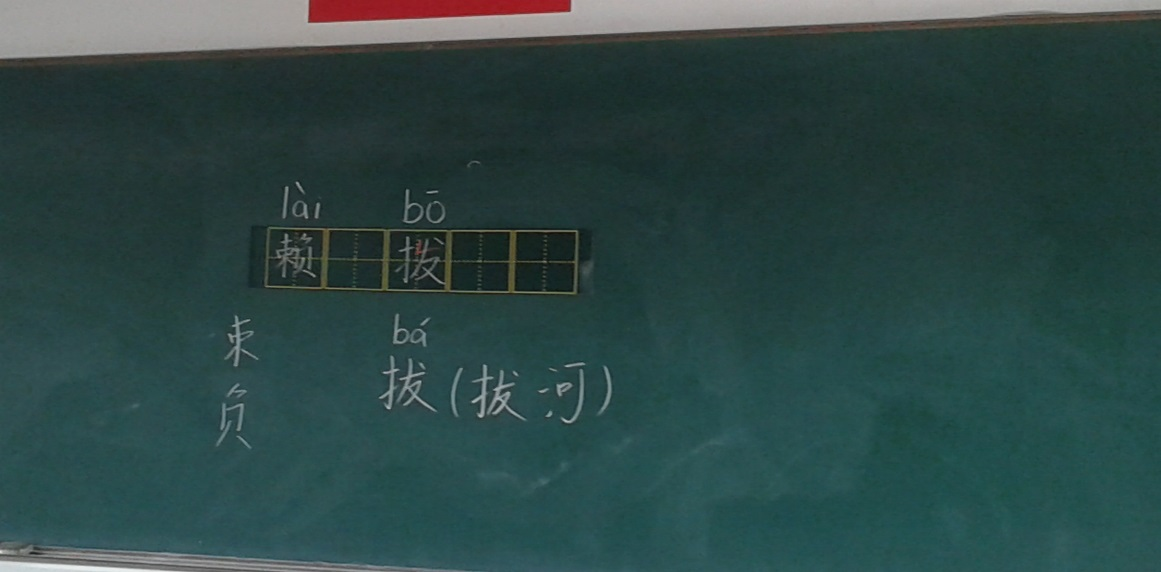 lài bō
赖 拨
束
负
bá
拔(拔河)